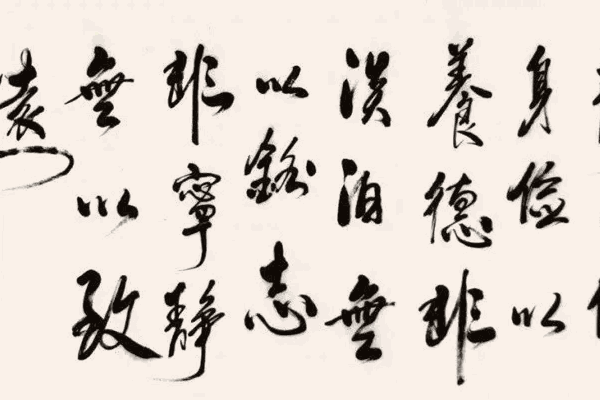 身俭以
養德非
淡泊無
以銘志
非寧靜
無以致
遠